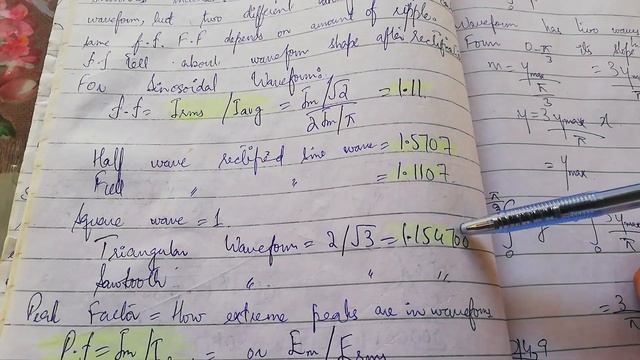 waveform, but two different
same f.f. F.F depends on amount of ripple.
f.f tell about waveform shape after rectificati
For Sinosoidal Waveform:
f.f = Irms / Iavg = Im/√2 / 2Im/π = 1.11
Half wave rectified sine wave = 1.5707
Full " " = 1.1107
Square wave = 1
Triangular Waveform = 2/√3 = 1.154700
Sawtooth " " "
Peak Factor = How extreme peaks are in waveform
P.f = Im/I = or Em/Erms
Waveform has two
Form 0-π/3 its slope
m = ymax / π/3 = 3y
y = 3 ymax / π x
= ymax